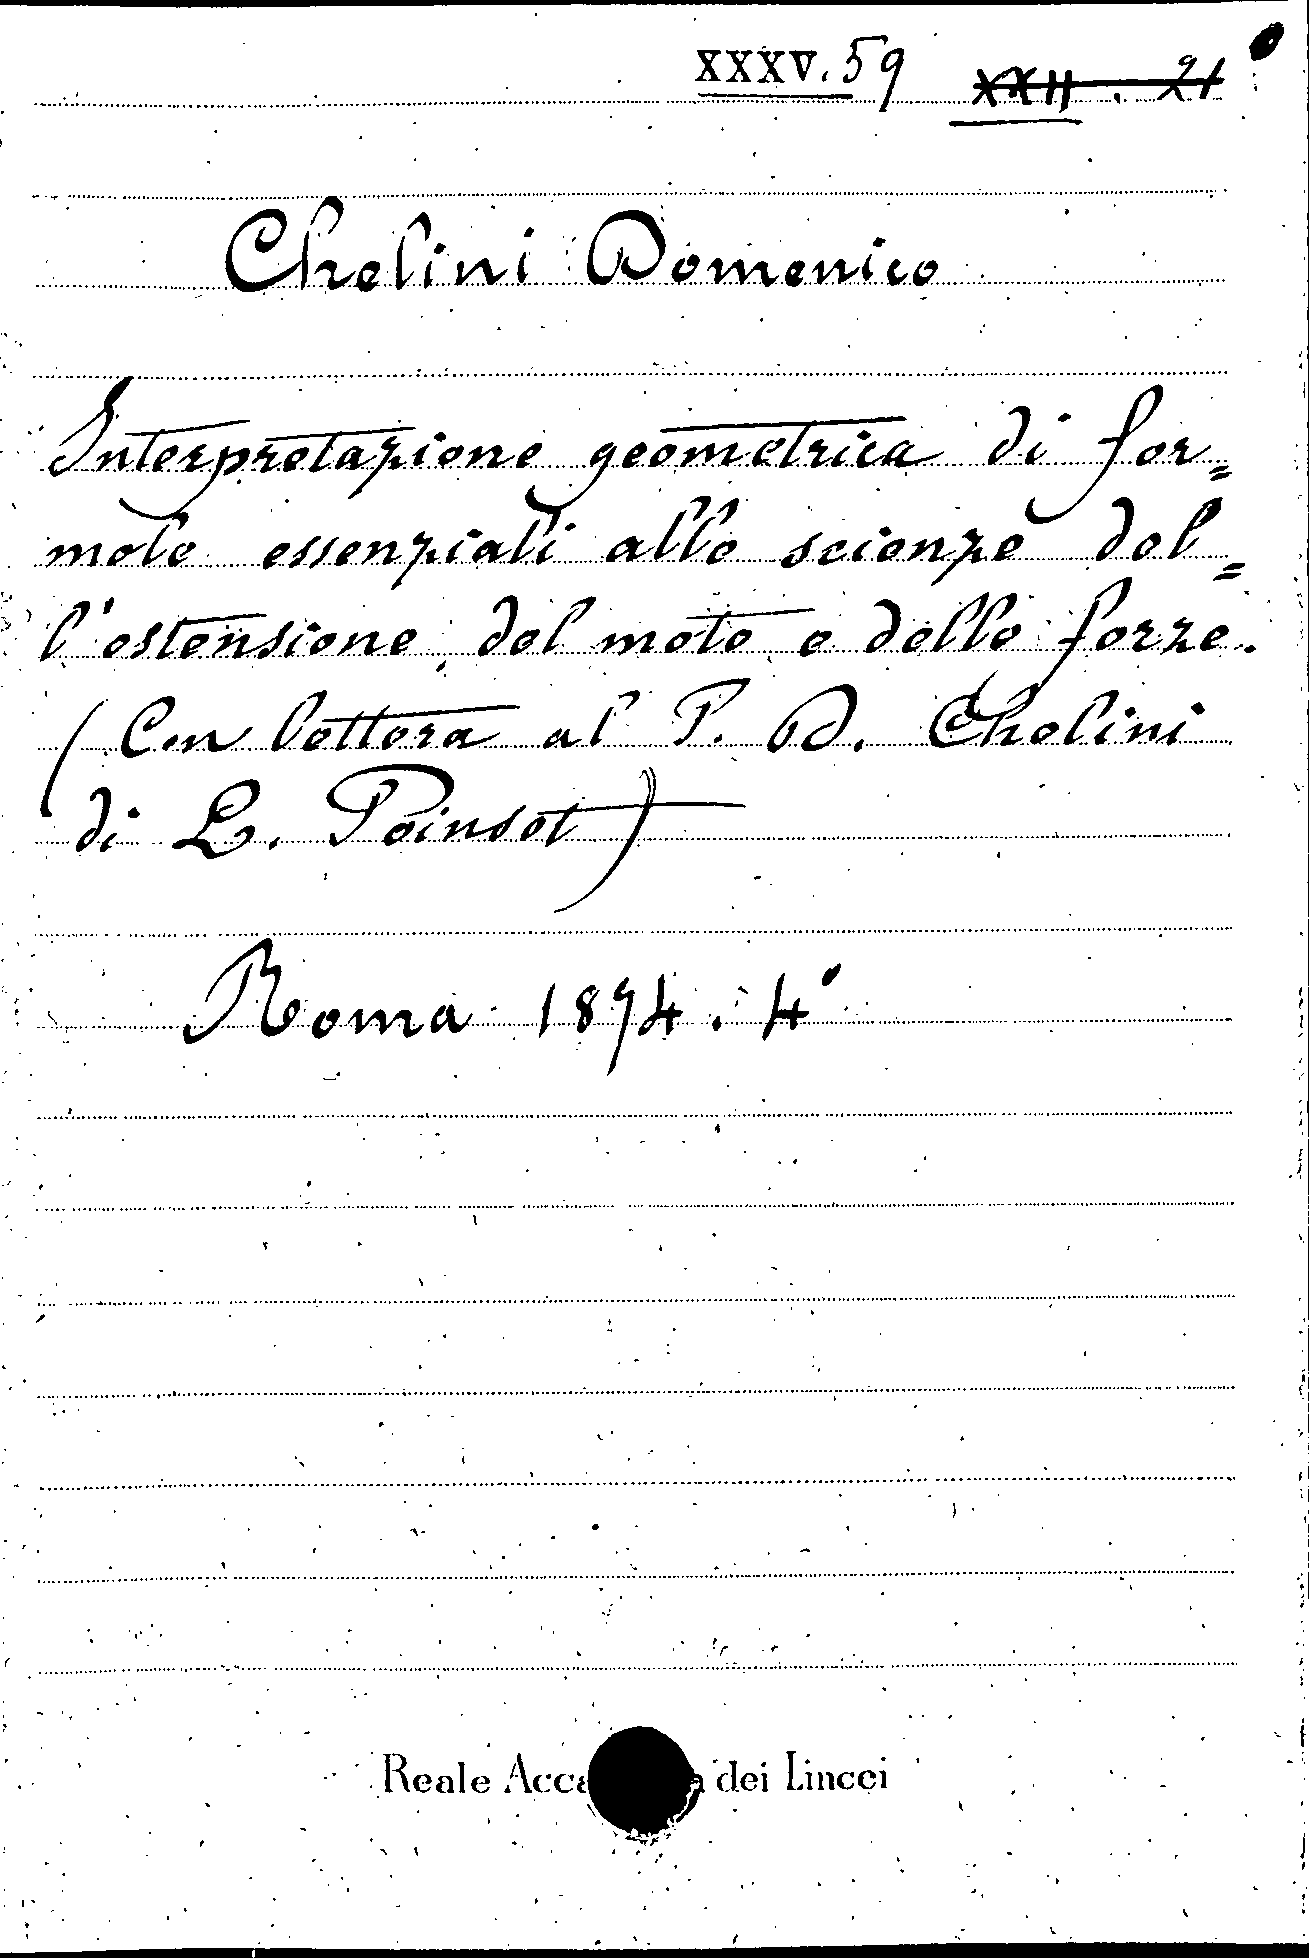 XXXV. 59 XXII. 21
Chelini Domenico
Interpretazione geometrica di for=
mole essenziali alle scienze del=
l'estensione, del moto e delle forze.
(Con lettera al P. D. Chelini
di L. Poinsot)
Roma 1874. 4°
Reale Acca a dei Lincei